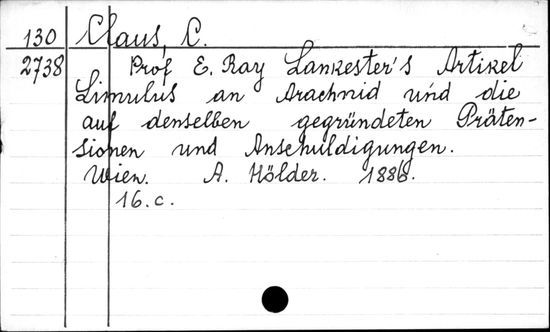 130 Claus, C.
2738 Prof E. Ray Lankester's Artikel
Limulus an Arachnid und die
auf denselben gegründeten Präten-
sionen und Anschuldigungen.
Wien. A. Hölder. 1886.
16.c.